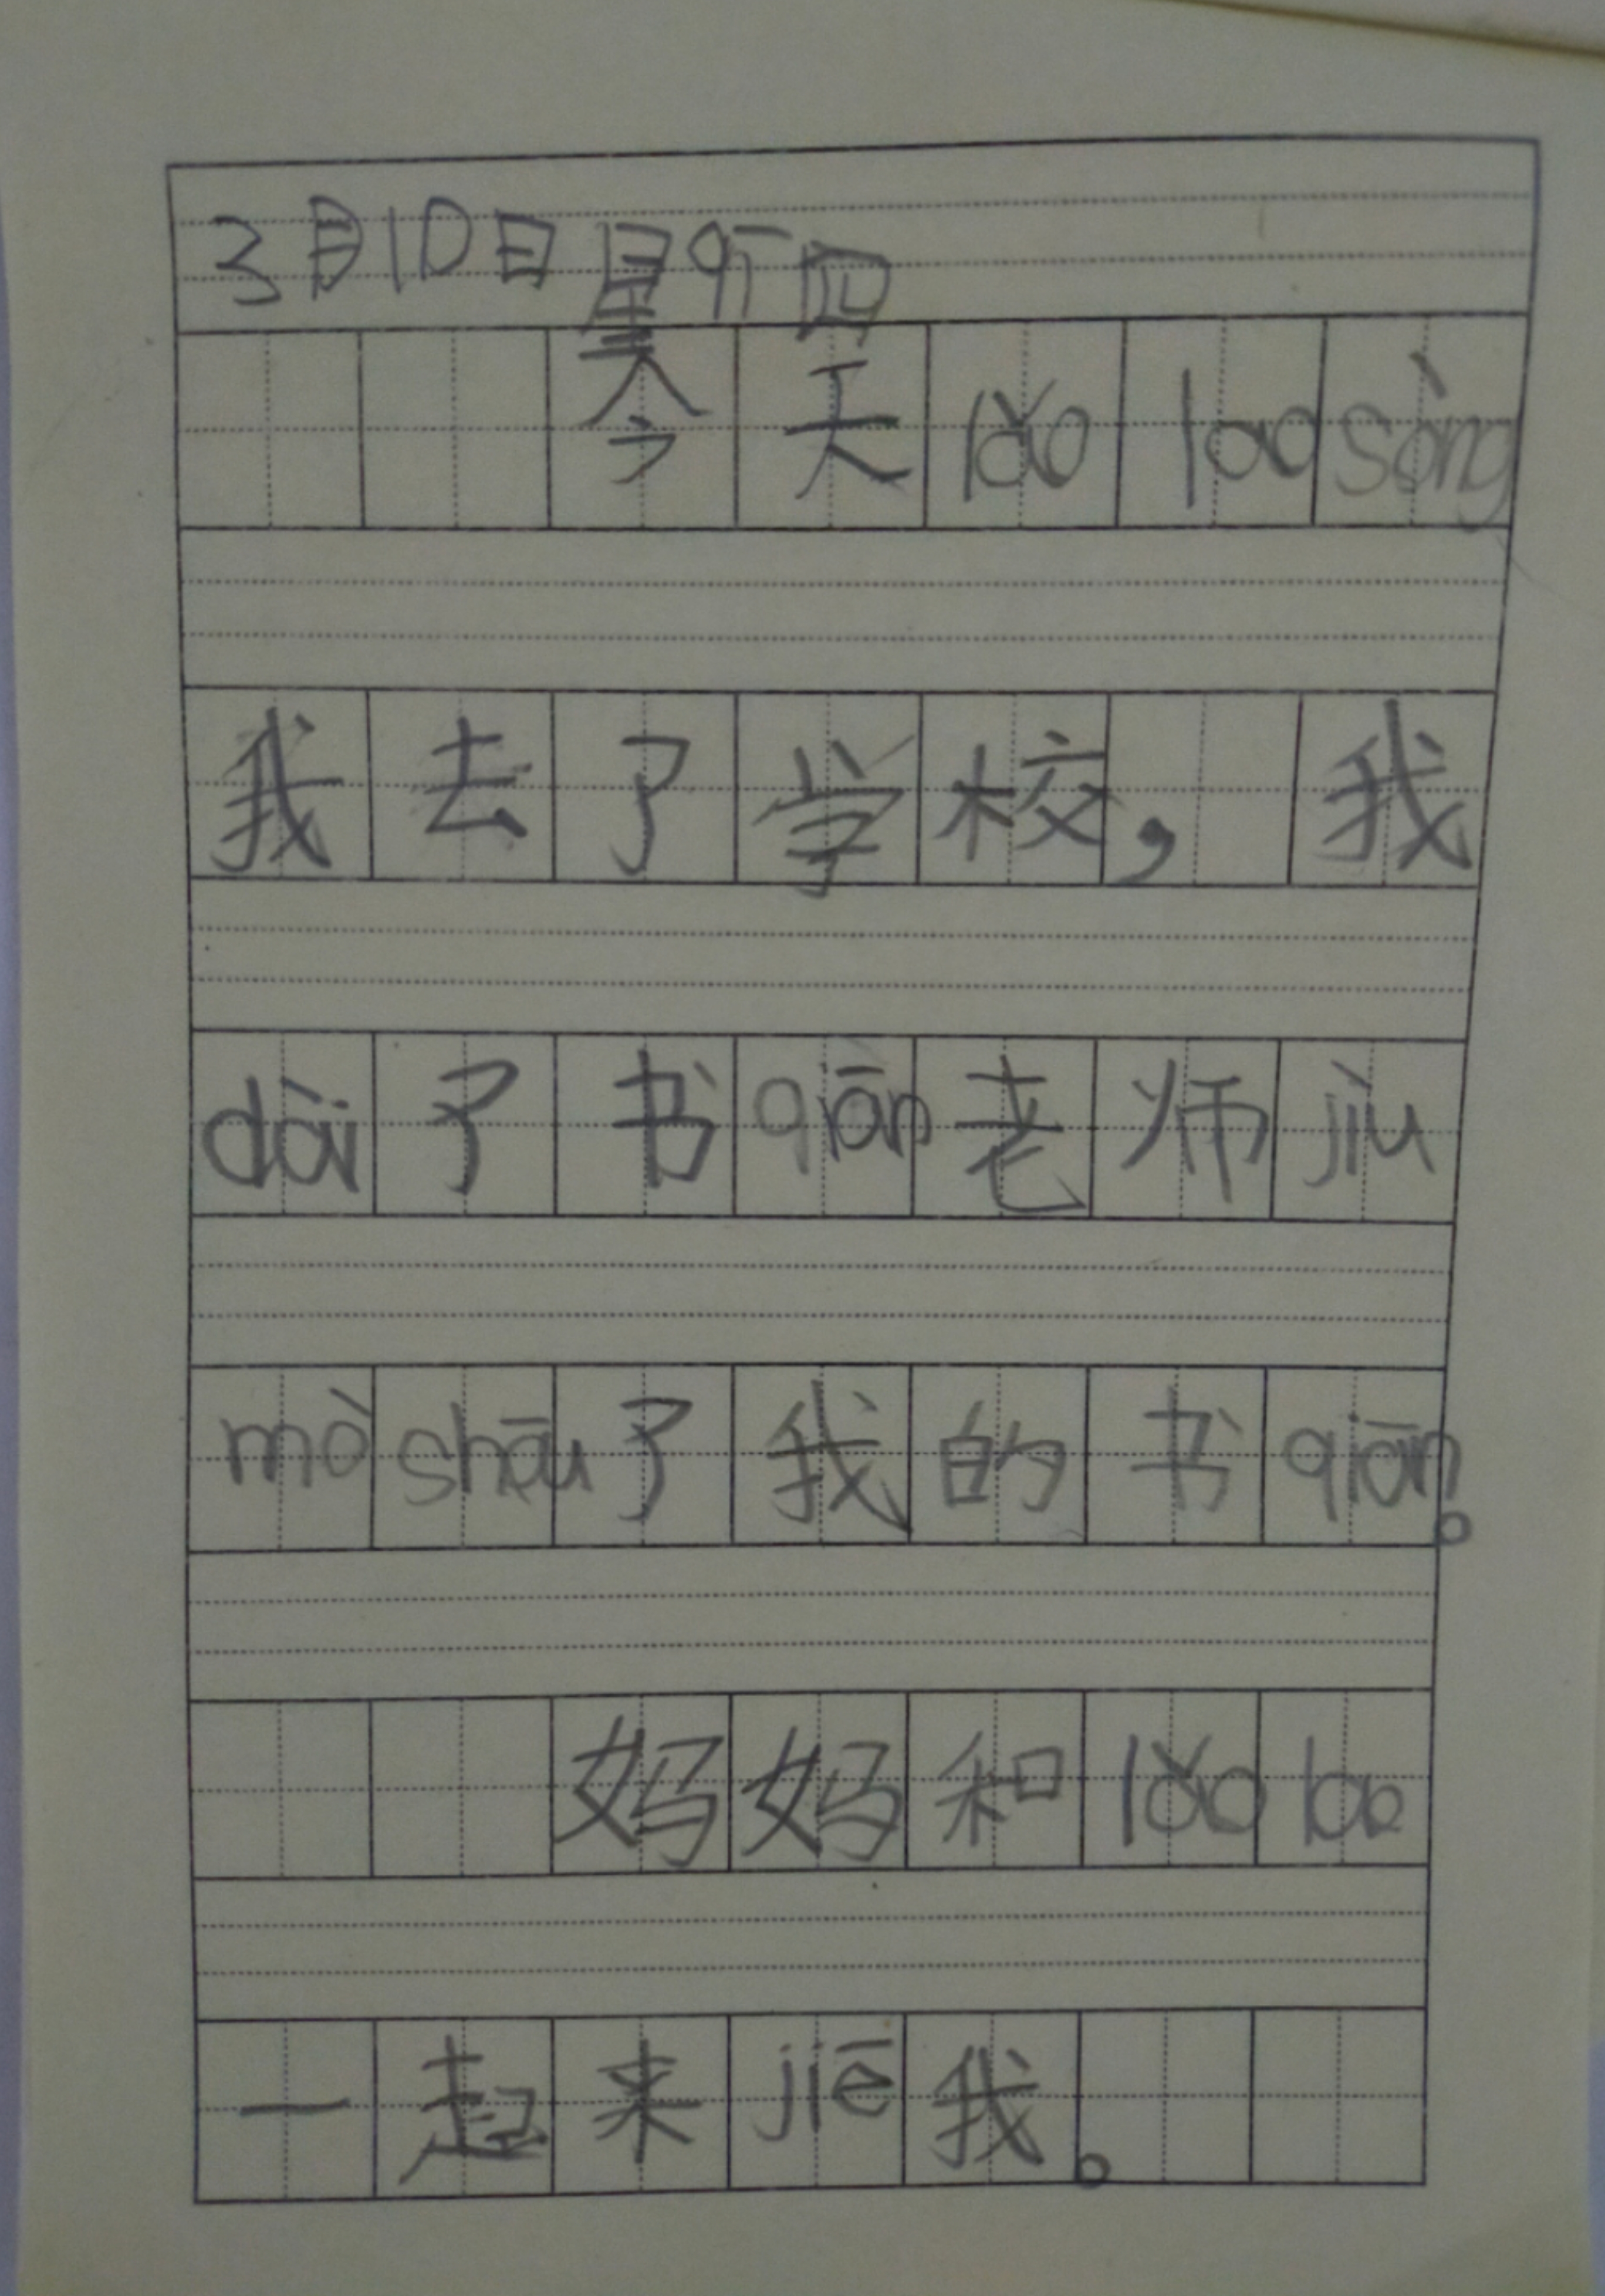 3月10日星期四
今天lǎo lao sòng
我去了学校，我
dài了书qiān老师jiù
mò shōu了我的书qiān。
妈妈和lǎo lao
一起来jiē我。